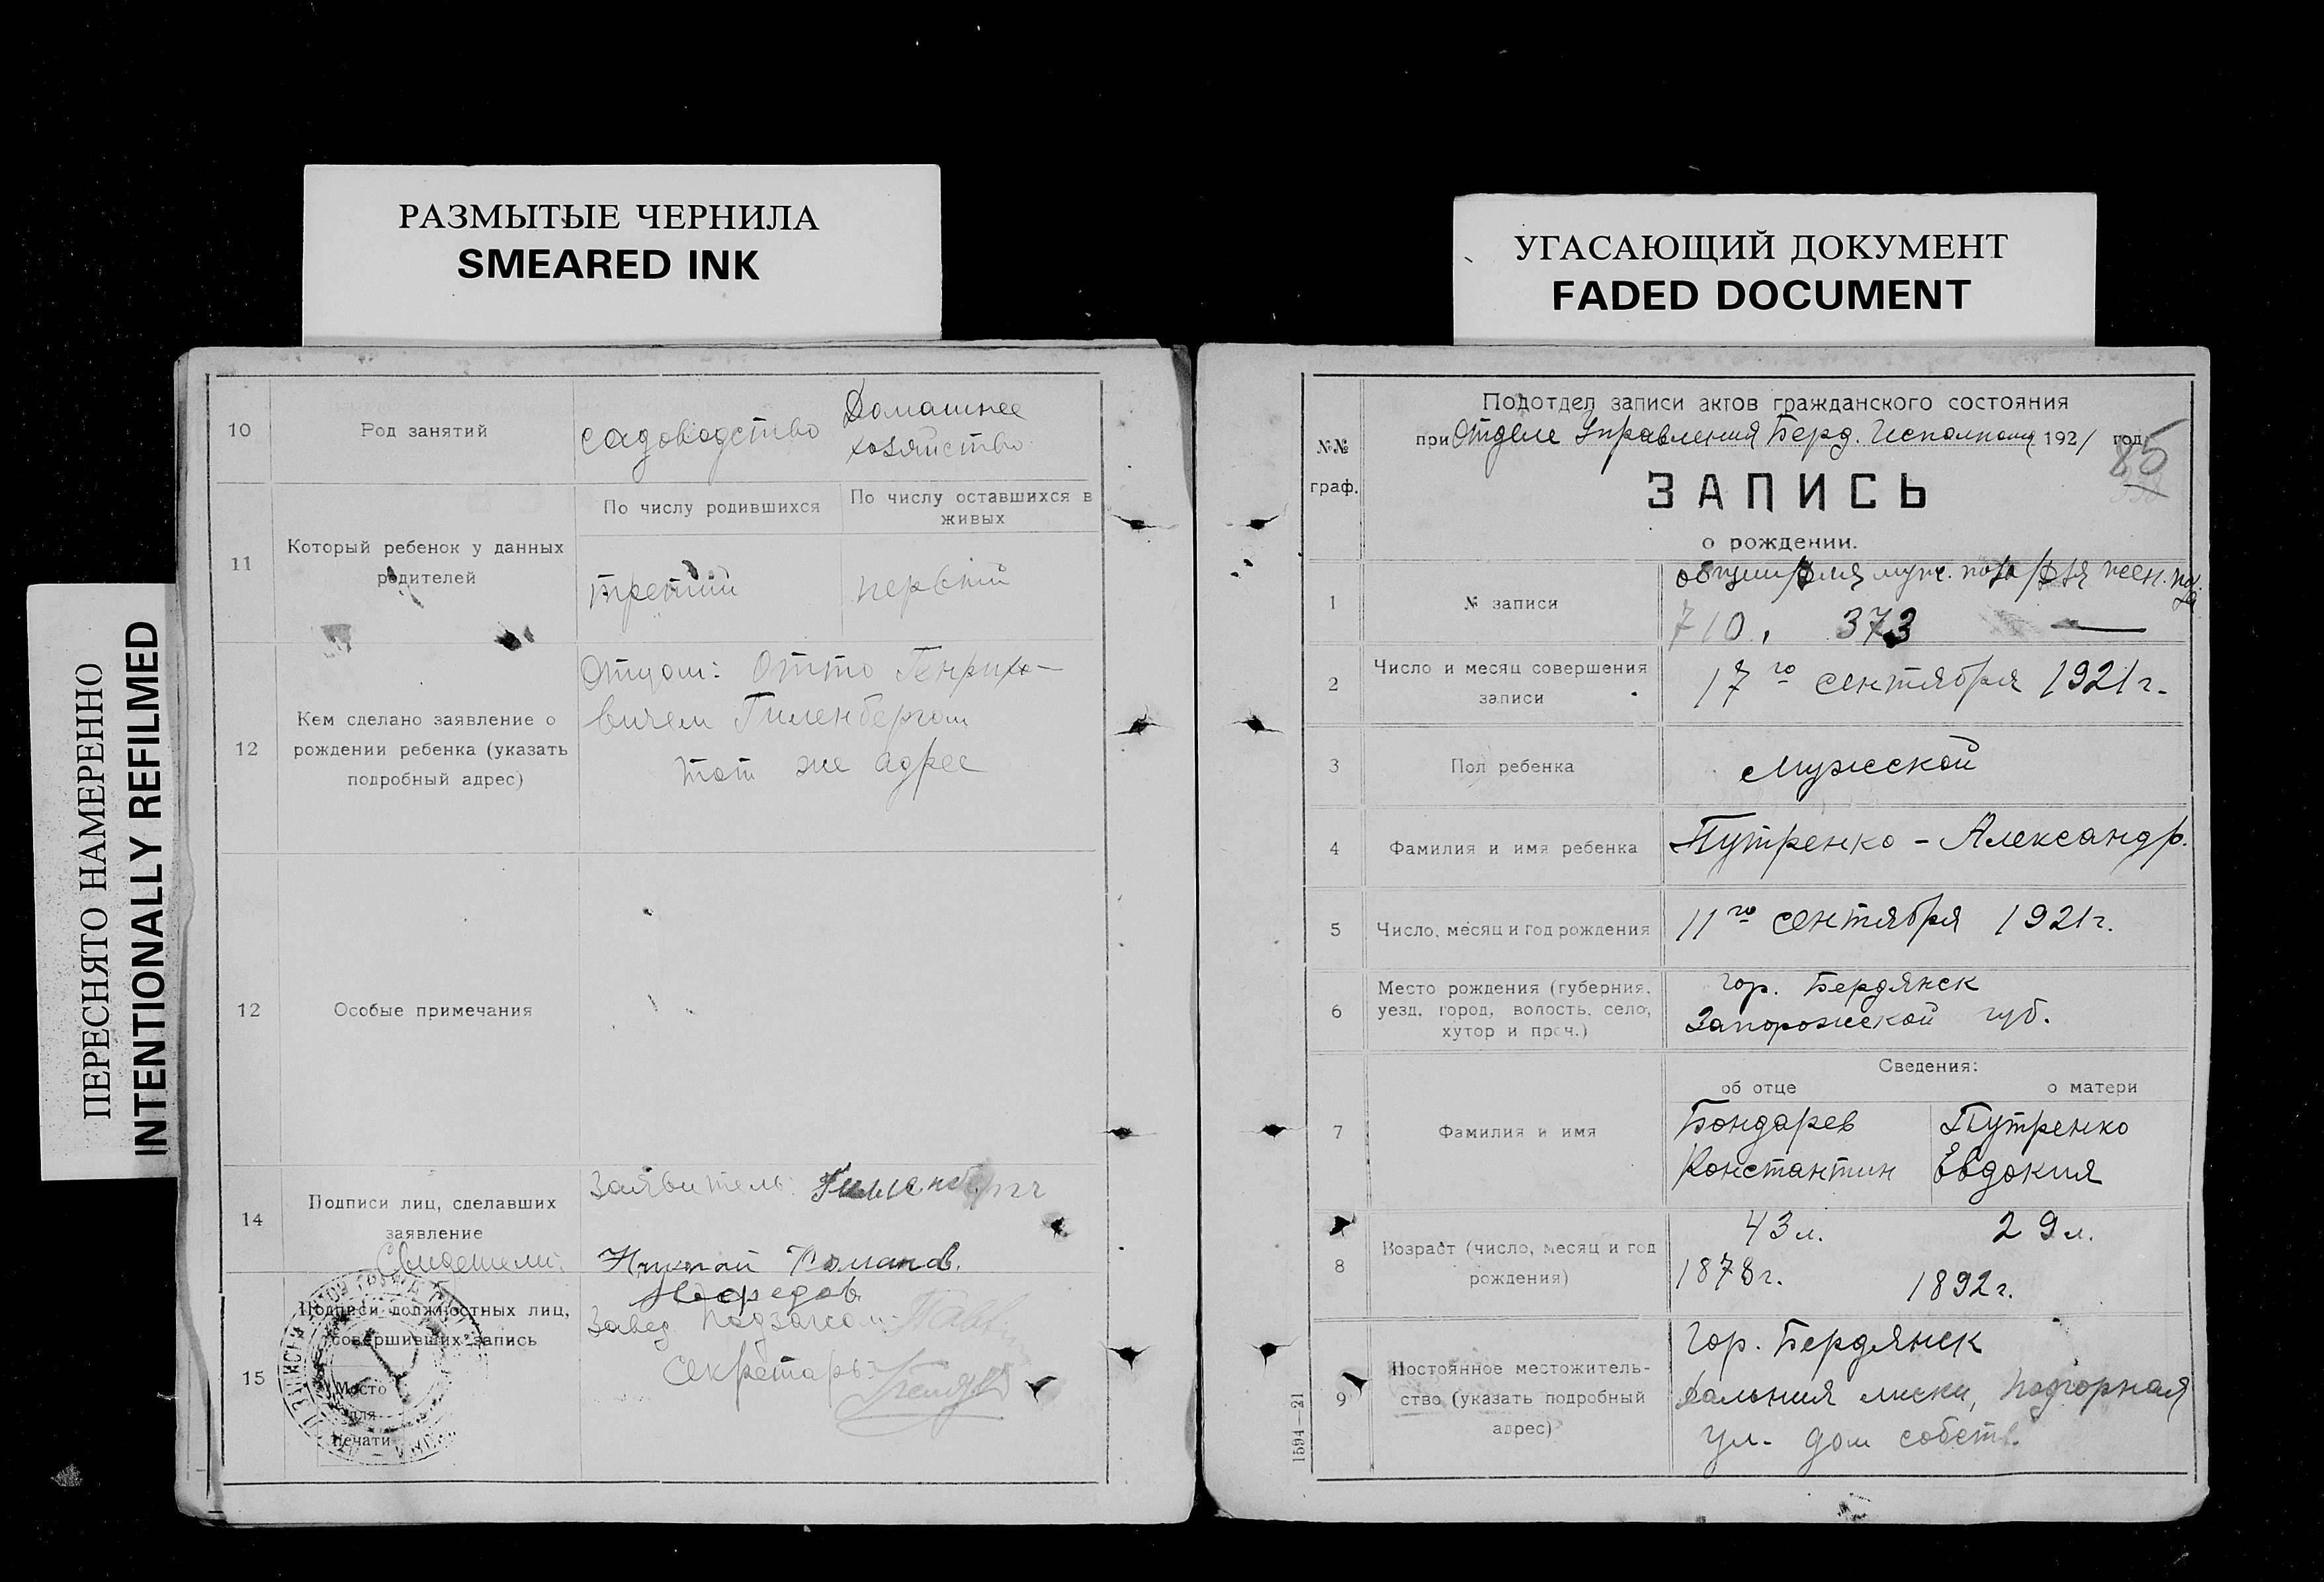 РАЗМЫТЫЕ ЧЕРНИЛА
SMEARED INK
УГАСАЮЩИЙ ДОКУМЕНТ
FADED DOCUMENT
ПЕРЕСНЯТО НАМЕРЕННО
INTENTIONALLY REFILMED
10
Род занятий
садоводство
Домашнее
хозяйство
11
Который ребенок у данных
родителей
По числу родившихся
По числу оставшихся в
живых
третий
первый
12
Кем сделано заявление о
рождении ребенка (указать
подробный адрес)
Отцом: Отто Генрихо-
вичем Гиленбергом
тот же адрес
12
Особые примечания
14
Подписи лиц, сделавших
заявление
Заявитель:
Свидетели:
15
Подписи должностных лиц,
совершивших запись
Место
для
печати
Завед. Подзагсом
Секретарь:
№№
граф.
Подотдел записи актов гражданского состояния
при Отделе Управления Берд. Исполкома 1921 год
85
ЗАПИСЬ
о рождении.
1
№ записи
общий/для муж. пола/для жен. пола
710, 373 —
2
Число и месяц совершения
записи
17го сентября 1921 г.
3
Пол ребенка
Мужской
4
Фамилия и имя ребенка
Путренко - Александр.
5
Число, месяц и год рождения
11го сентября 1921 г.
6
Место рождения (губерния,
уезд, город, волость, село,
хутор и проч.)
гор. Бердянск
Запорожской губ.
Сведения:
об отце
о матери
7
Фамилия и имя
Бондарев
Константин
Путренко
Евдокия
8
Возраст (число, месяц и год
рождения)
43 л.
1878 г.
29 л.
1892 г.
9
Постоянное местожитель-
ство (указать подробный
адрес)
Гор. Бердянск
Дальния лиски, Подгорная
ул. дом собств.
1594—21